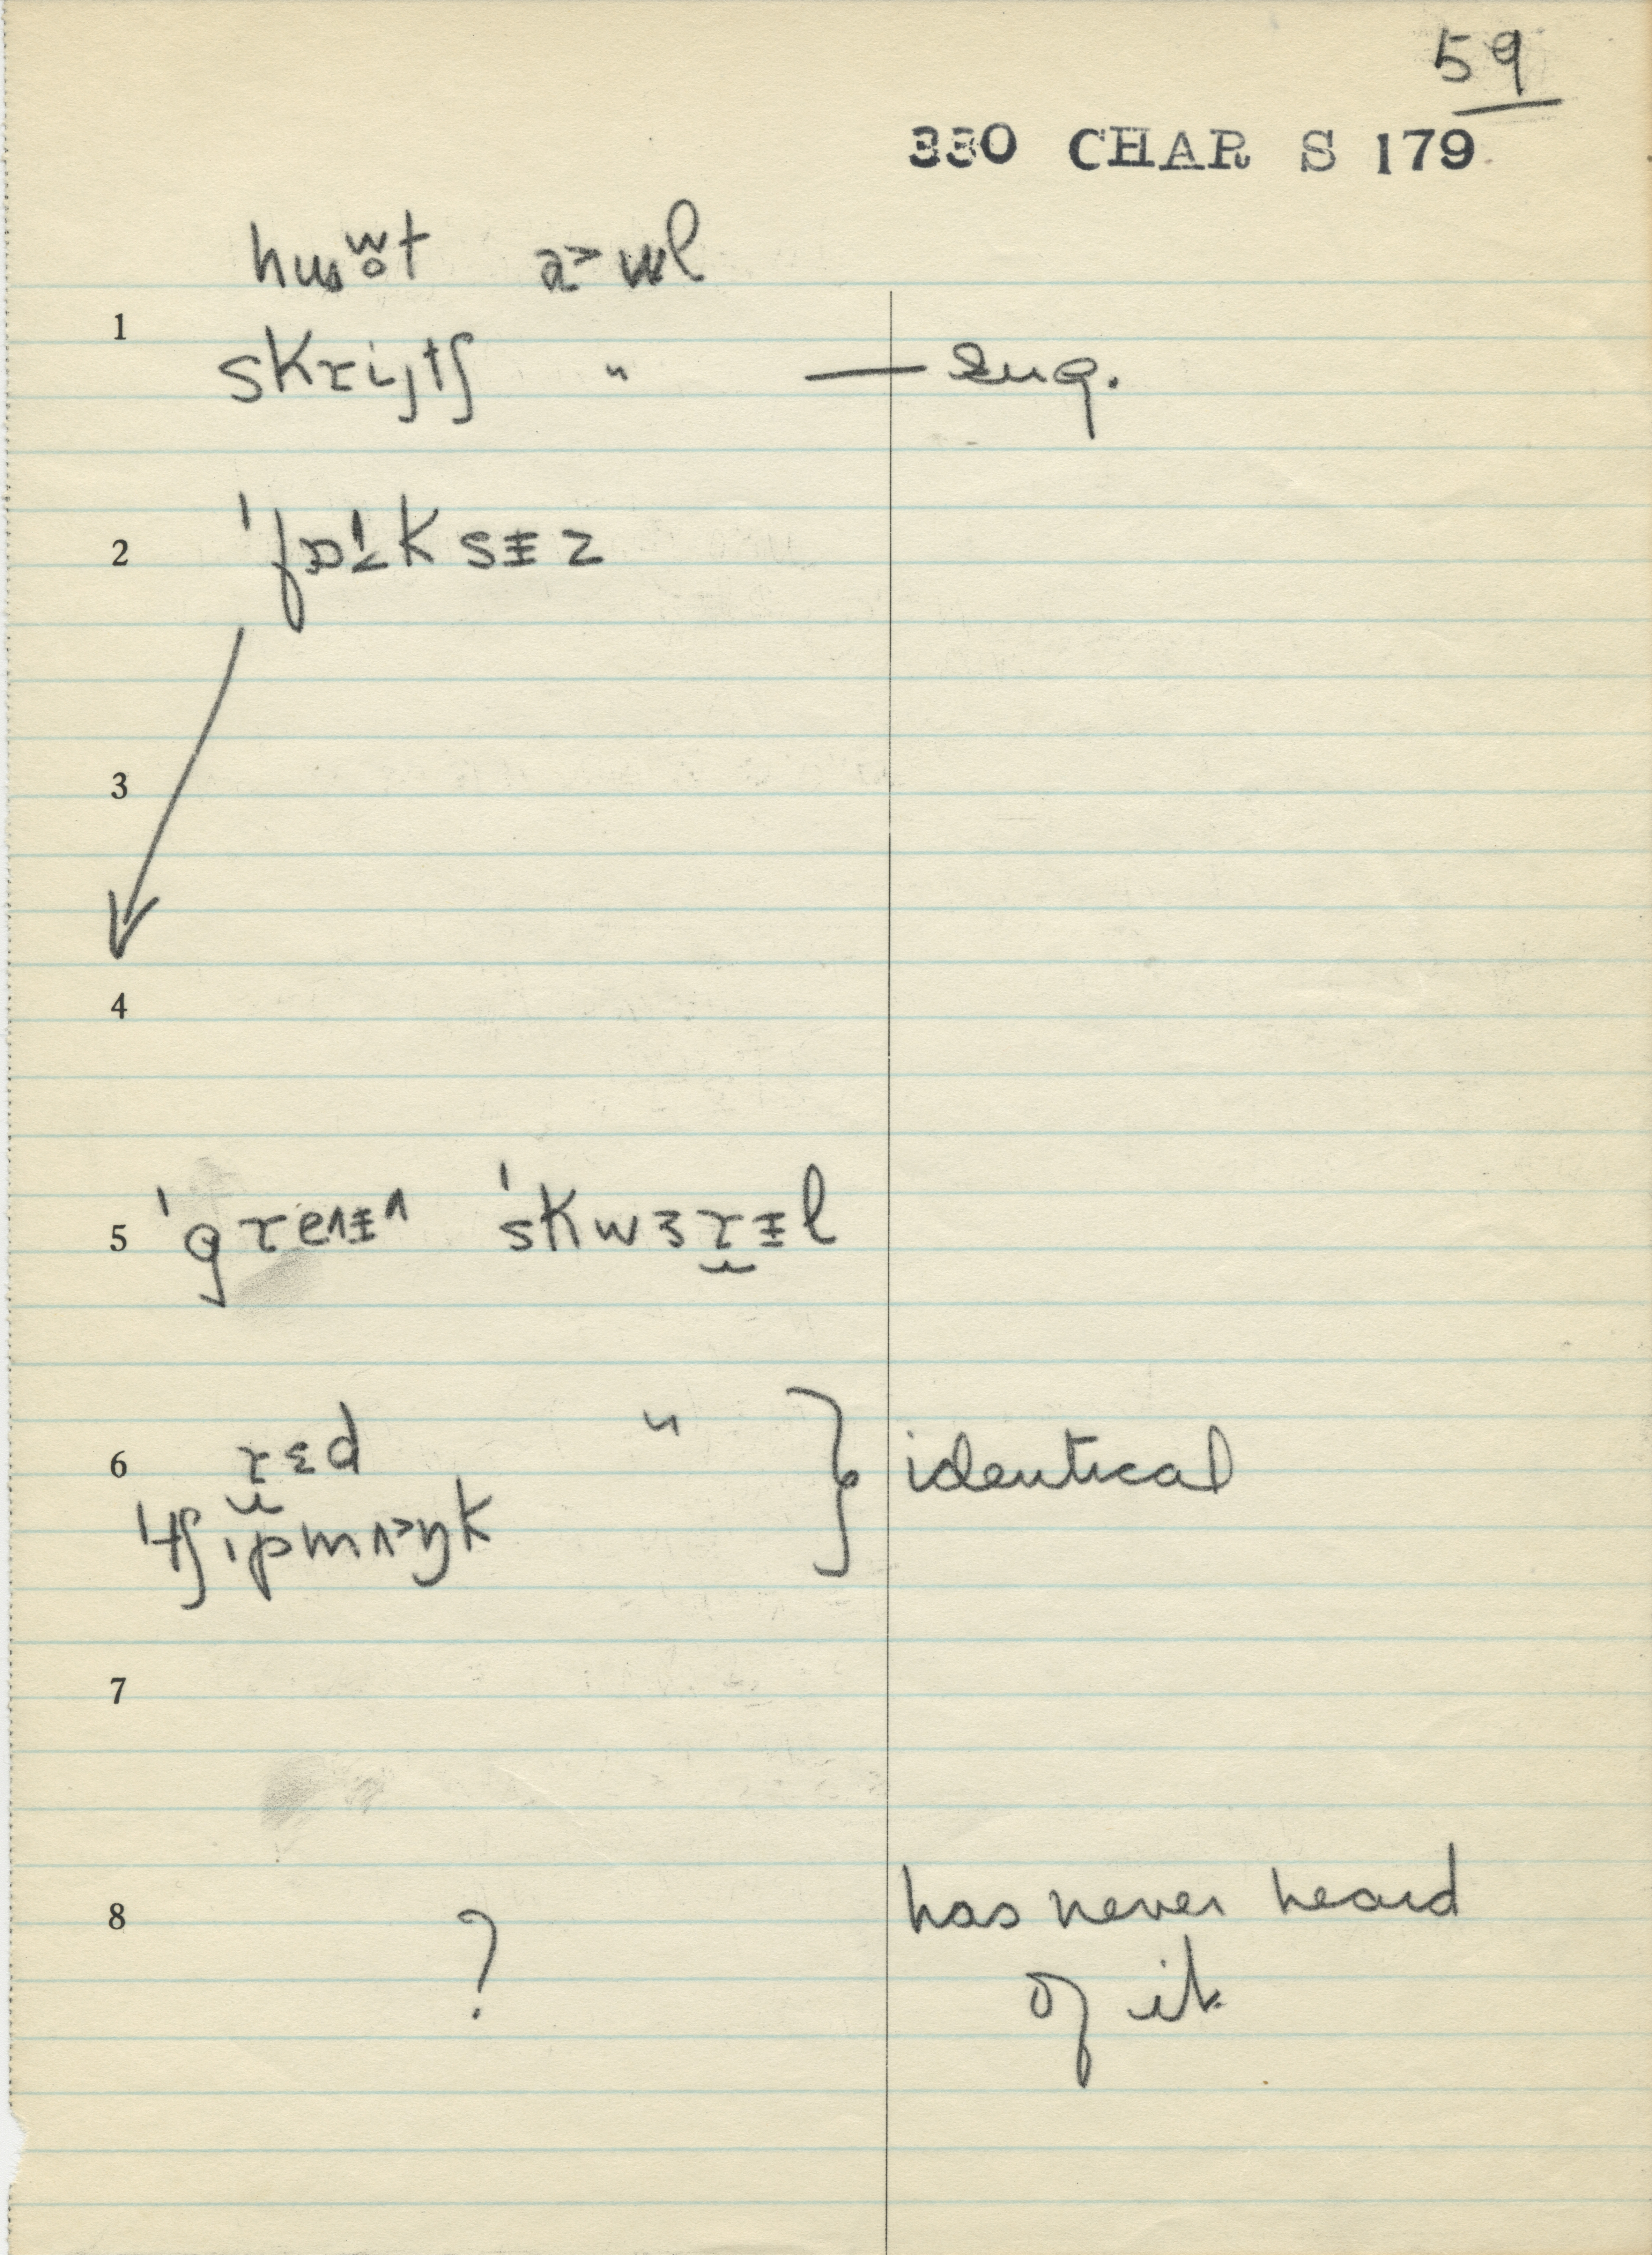 59
330 CHAR S 179
huʷo̯t a>wl
1
skrijtʃ " — sug.
2 'fɒˡɪksɨz
3
4
5 'greᴧɨn 'skwɜrɨl
6 rɛd " } identical
'tʃɪpmᴧ>ŋk
7
8 ? has never heard
of it